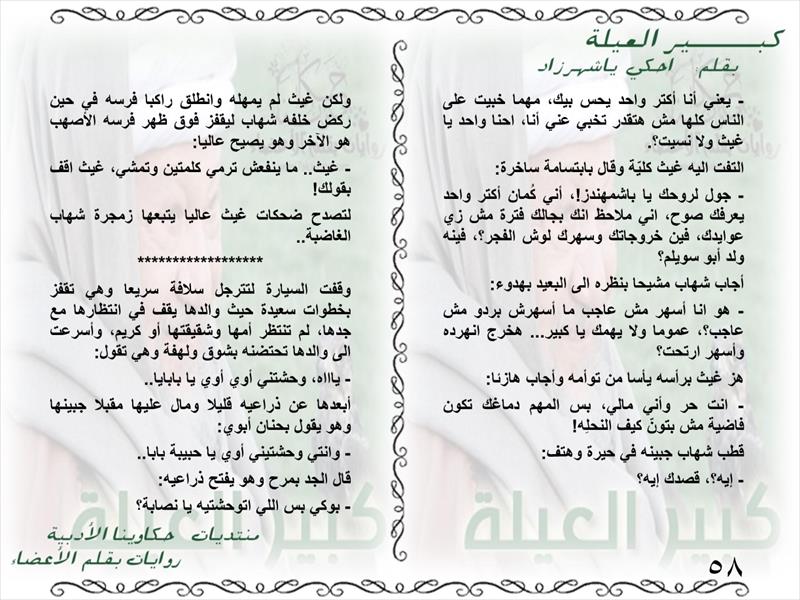 كبـــــــير العيلة
بقلم/ احكي ياشهرزاد
- يعني أنا أكتر واحد يحس بيك، مهما خبيت على
الناس كلها مش هتقدر تخبي عني أنا، احنا واحد يا
غيث ولا نسيت؟.
التفت اليه غيث كليّة وقال بابتسامة ساخرة:
- جول لروحك يا باشمهندز!، أني كُمان أكتر واحد
يعرفك صوح، اني ملاحظ انك بجالك فترة مش زي
عوايدك، فين خروجاتك وسهرك لوش الفجر؟، فينه
ولد أبو سويلم؟
أجاب شهاب مشيحا بنظره الى البعيد بهدوء:
- هو انا أسهر مش عاجب ما أسهرش بردو مش
عاجب؟، عموما ولا يهمك يا كبير... هخرج انهرده
وأسهر ارتحت؟
هز غيث برأسه يأسا من توأمه وأجاب هازئا:
- انت حر وأني مالي، بس المهم دماغك تكون
فاضية مش بتونّ كيف النحلِه!
قطب شهاب جبينه في حيرة وهتف:
- إيه؟، قصدك إيه؟
ولكن غيث لم يمهله وانطلق راكبا فرسه في حين
ركض خلفه شهاب ليقفز فوق ظهر فرسه الأصهب
هو الآخر وهو يصيح عاليا:
- غيث.. ما ينفعش ترمي كلمتين وتمشي، غيث اقف
بقولك!
لتصدح ضحكات غيث عاليا يتبعها زمجرة شهاب
الغاضبة..
******************
وقفت السيارة لتترجل سلافة سريعا وهي تقفز
بخطوات سعيدة حيث والدها يقف في انتظارها مع
جدها، لم تنتظر أمها وشقيقتها أو كريم، وأسرعت
الى والدها تحتضنه بشوق ولهفة وهي تقول:
- ياااه، وحشتني أوي أوي يا بابايا..
أبعدها عن ذراعيه قليلا ومال عليها مقبلا جبينها
وهو يقول بحنان أبوي:
- وانتي وحشتيني أوي يا حبيبة بابا..
قال الجد بمرح وهو يفتح ذراعيه:
- بوكي بس اللي اتوحشتيه يا نصابة؟
كبير العيلة
كبير العيلة
منتديات حكاوينا الأدبية
روايات بقلم الأعضاء
٥٨